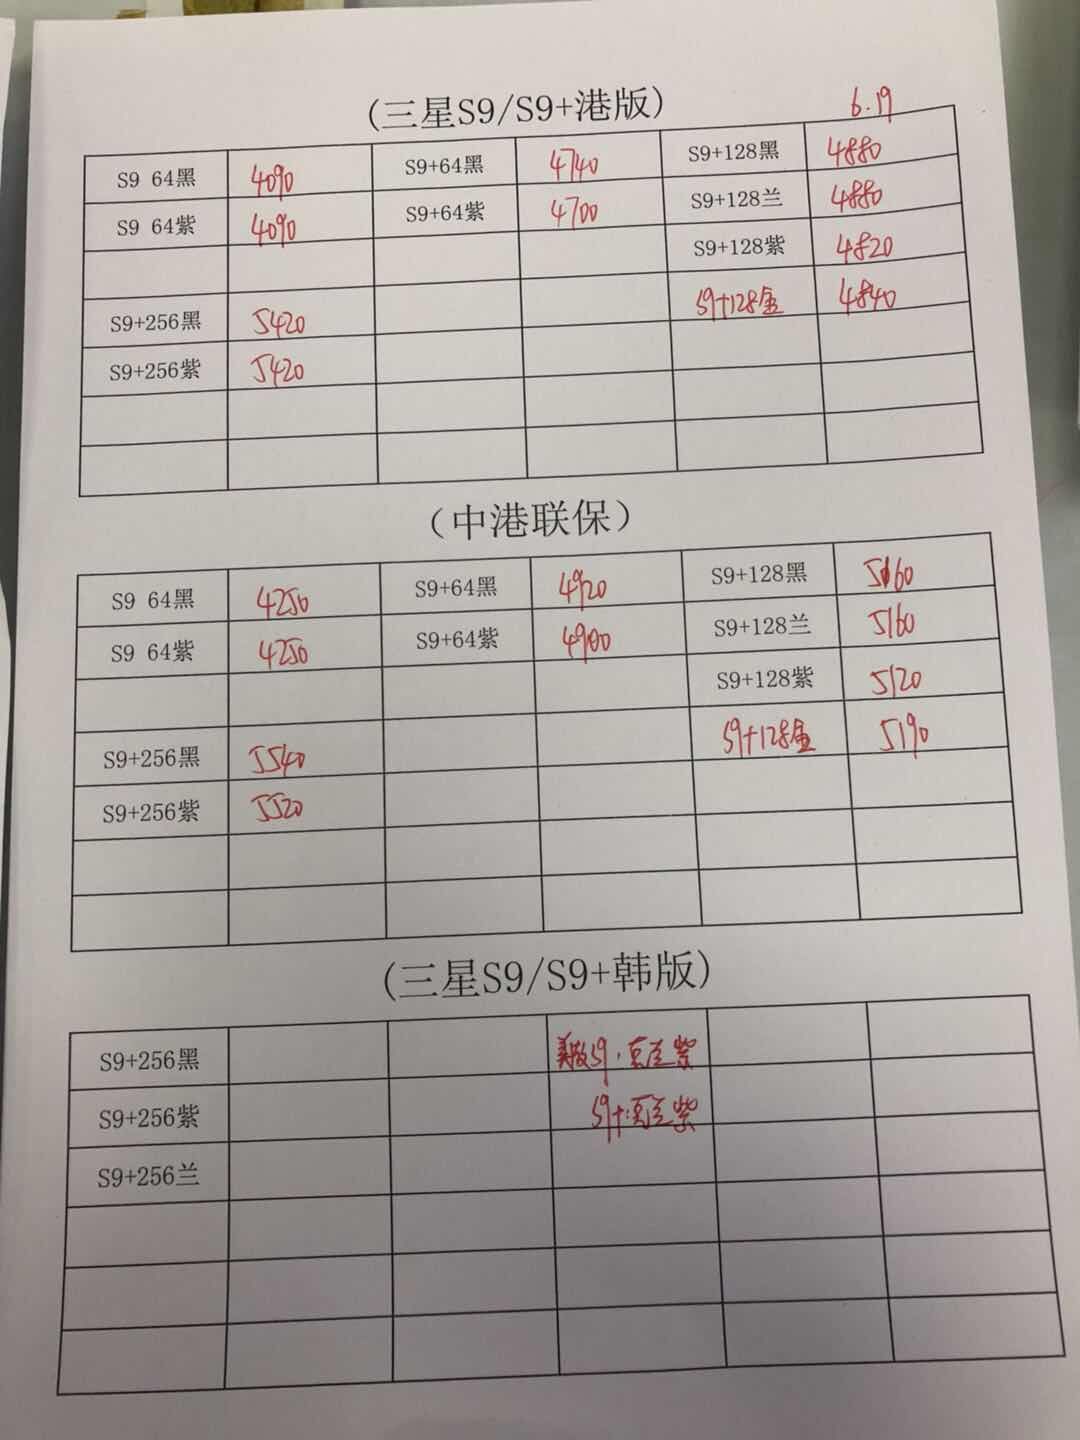 (三星S9/S9+港版)
6.19
S9 64黑 4090 S9+64黑 4740 S9+128黑 4880
S9 64紫 4090 S9+64紫 4700 S9+128兰 4880
S9+128紫 4820
S9+256黑 5420 S9+128金 4840
S9+256紫 5420
（中港联保）
S9 64黑 4250 S9+64黑 4920 S9+128黑 5160
S9 64紫 4250 S9+64紫 4900 S9+128兰 5160
S9+128紫 5120
S9+256黑 5540 S9+128金 5190
S9+256紫 5520
(三星S9/S9+韩版)
S9+256黑 美版S9.紫
S9+256紫 S9+:紫
S9+256兰